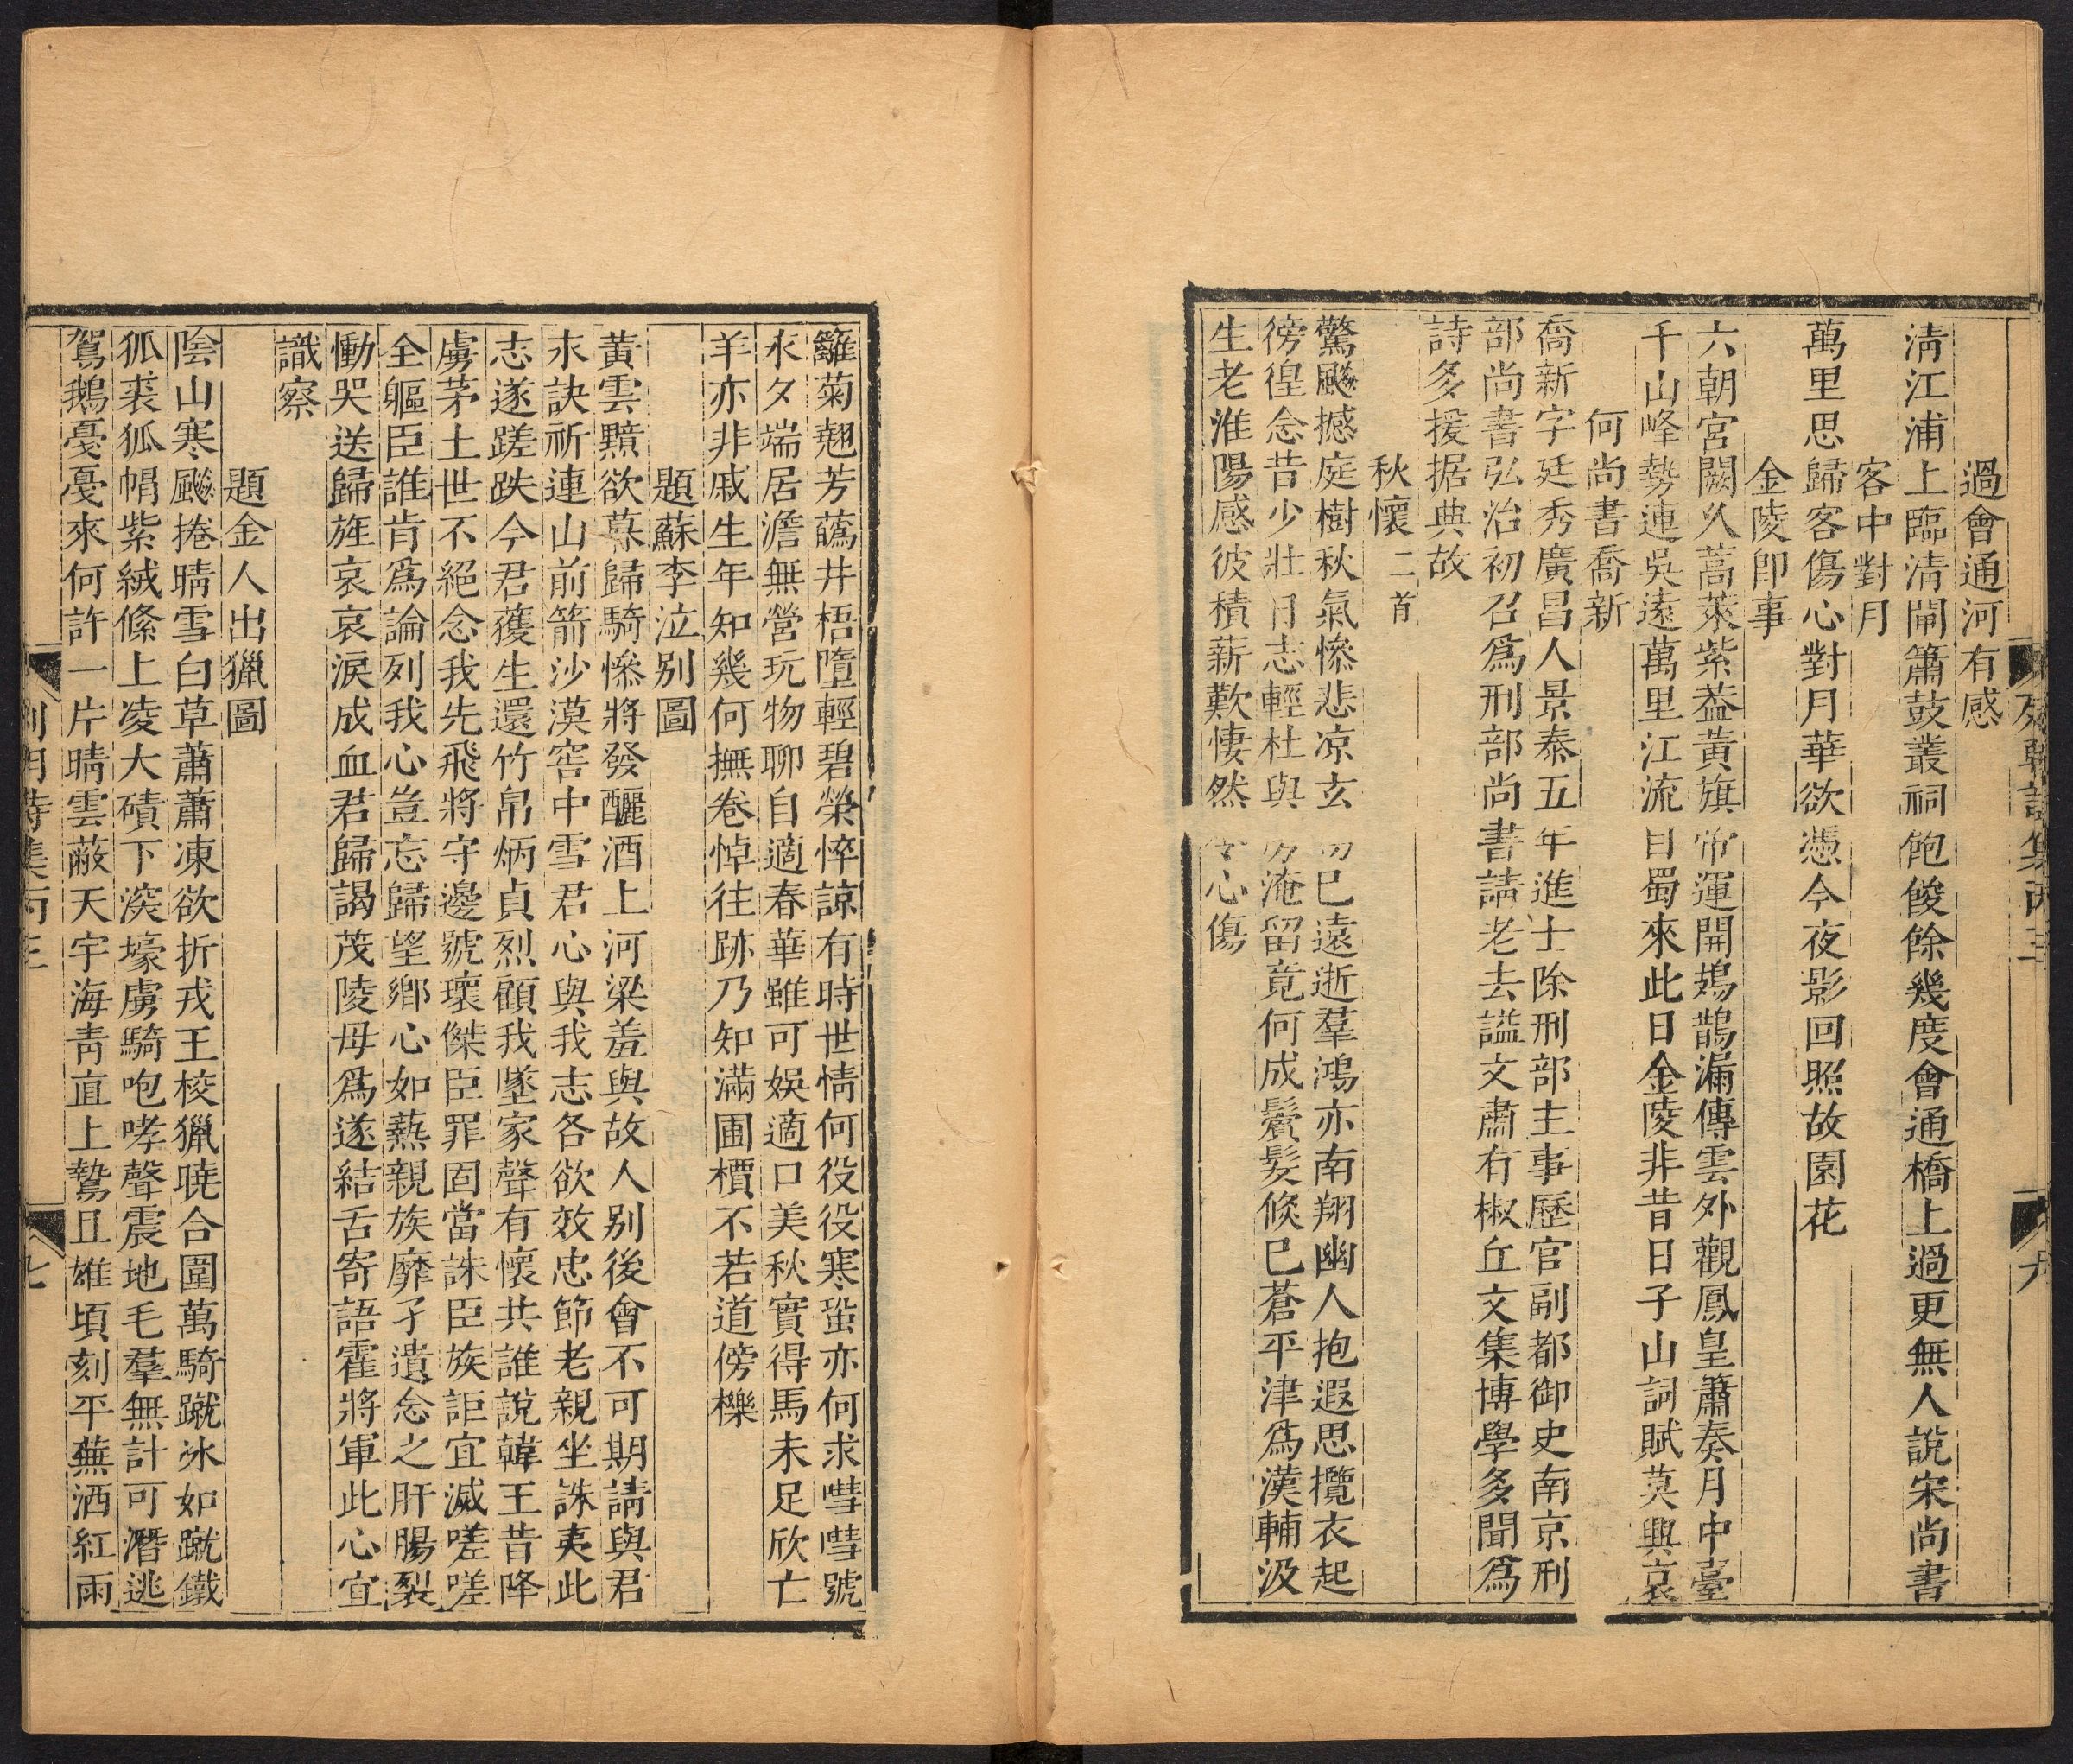 過會通河有感
淸江浦上臨淸閘簫鼓叢祠飽餕餘幾度會通橋上過更無人說宋尚書
客中對月
萬里思歸客傷心對月華欲憑今夜影回照故園花
金陵卽事
六朝宮闕久蒿萊紫葢黃旗帝運開鳷鵲漏傳雲外觀鳳皇簫奏月中臺
千山峰勢連吳遠萬里江流自蜀來此日金陵非昔日子山詞賦莫興哀
何尚書喬新
喬新字廷秀廣昌人景泰五年進士除刑部主事歷官副都御史南京刑
部尚書弘治初召爲刑部尚書請老去謚文肅有椒丘文集博學多聞爲
詩多援据典故
秋懷二首
驚飈撼庭樹秋氣慘悲凉玄已遠逝羣鴻亦南翔幽人抱遐思攬衣起
徬徨念昔少壯日志輕杜與淹留竟何成鬢髮倐已蒼平津爲漢輔汲
生老淮陽感彼積薪歎悽然心傷
籬菊翹芳蘤井梧墮輕碧榮悴諒有時世情何役役寒蛩亦何求嘒嘒號
永夕端居澹無營玩物聊自適春華雖可娛適口美秋實得馬未足欣亡
羊亦非戚生年知幾何撫卷悼往跡乃知滿圃檟不若道傍櫟
題蘇李泣别圖
黃雲黯欲暮歸騎慘將發釃酒上河梁羞與故人别後會不可期請與君
永訣祈連山前箭沙漠窖中雪君心與我志各欲效忠節老親坐誅夷此
志遂蹉跌今君獲生還竹帛炳貞烈顧我墜家聲有懷共誰說韓王昔降
虜茅土世不絕念我先飛將守邊號瓌傑臣罪固當誅臣族詎宜滅嗟嗟
全軀臣誰肯爲論列我心豈忘歸望鄕心如爇親族靡孑遺念之肝腸裂
慟哭送歸旌哀哀淚成血君歸謁茂陵毋爲遂結舌寄語霍將軍此心宜
識察
題金人出獵圖
陰山寒飈捲晴雪白草蕭蕭凍欲折戎王校獵曉合圍萬騎蹴冰如蹴鐵
狐裘狐帽紫絨絛上凌大磧下深壕虜騎咆哮聲震地毛羣無計可潛逃
駕鵝戞戞來何許一片晴雲蔽天宇海靑直上鷙且雄頃刻平蕪洒紅雨
列朝詩集丙三
七